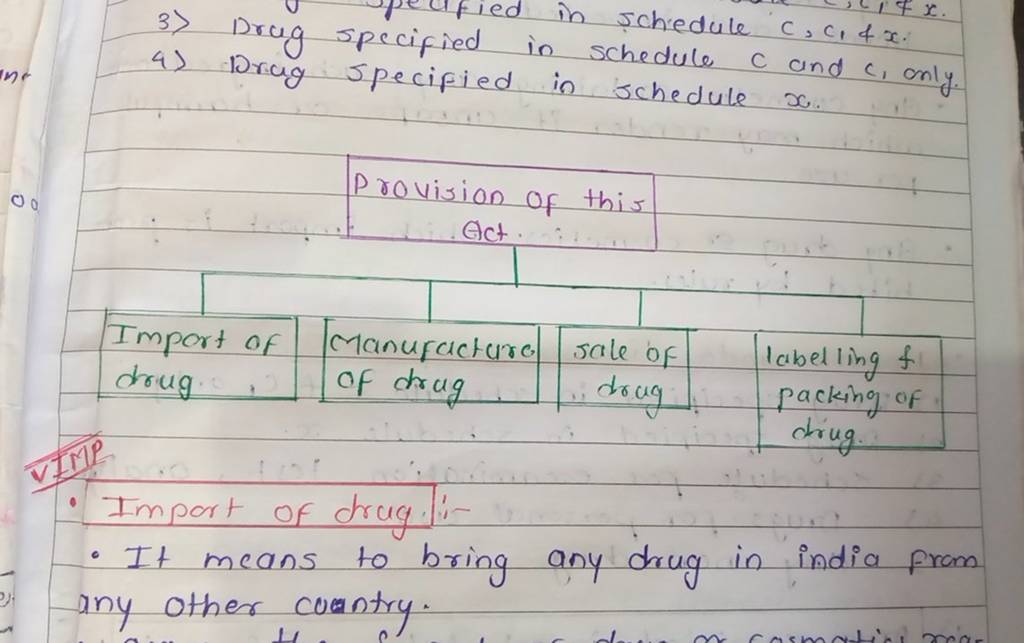 specified in schedule c, c, & x.
3> Drug specified in schedule c, c, & x.
4> Drug specified in schedule c and c, only.
Drug specified in schedule x.
Provision of this
Act.
Import of
drug.
Manufacture
of drug
sale of
drug
labelling &
packing of
drug.
VIMP
• Import of drug :-
• It means to bring any drug in india from
any other country.
drug or cosmetic